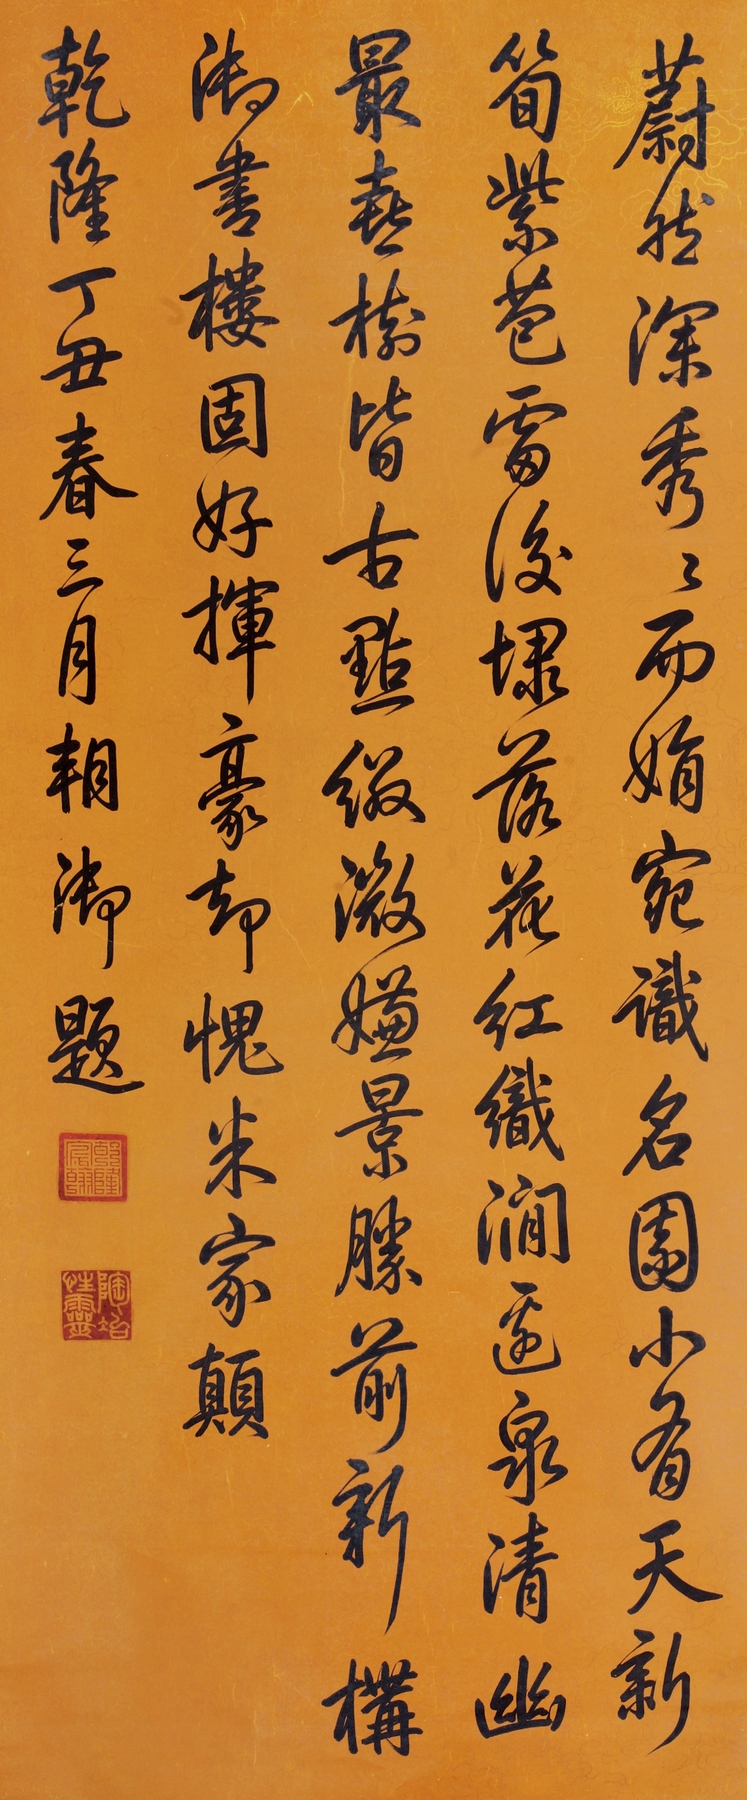 蔚然深秀〻而娟宛識名園小有天新
筍紫苞雷後埭落花紅織澗邊泉清幽
最喜樹皆古點綴微嫌景勝前新構
御書樓固好揮豪却愧米家顛
乾隆丁丑春三月朔御題
乾隆宸翰
陶冶性靈